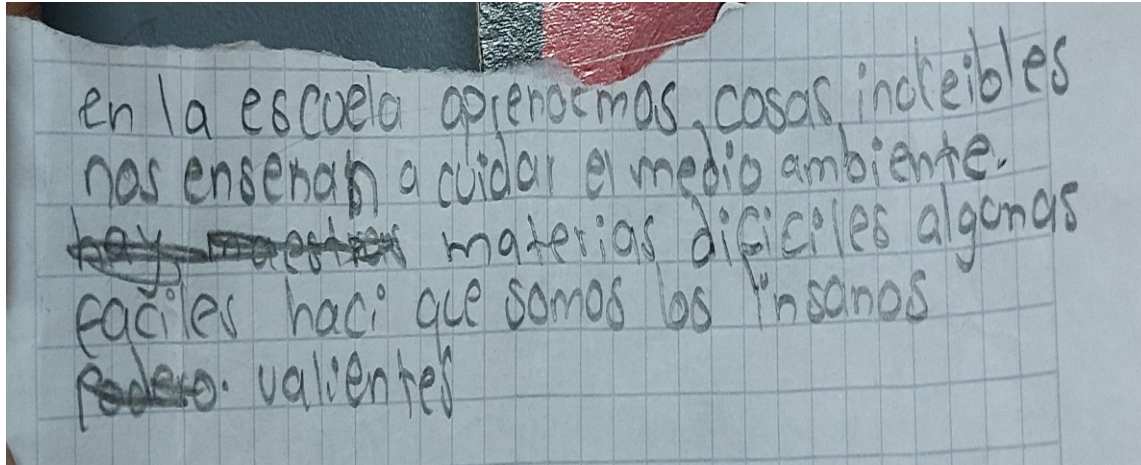 en la escuela aprenoemos cosas increibles
nos ensenan a cuidar el medio ambiente.
hay maestros materias dificiles algunas
faciles haci que somos los insanos
valientes